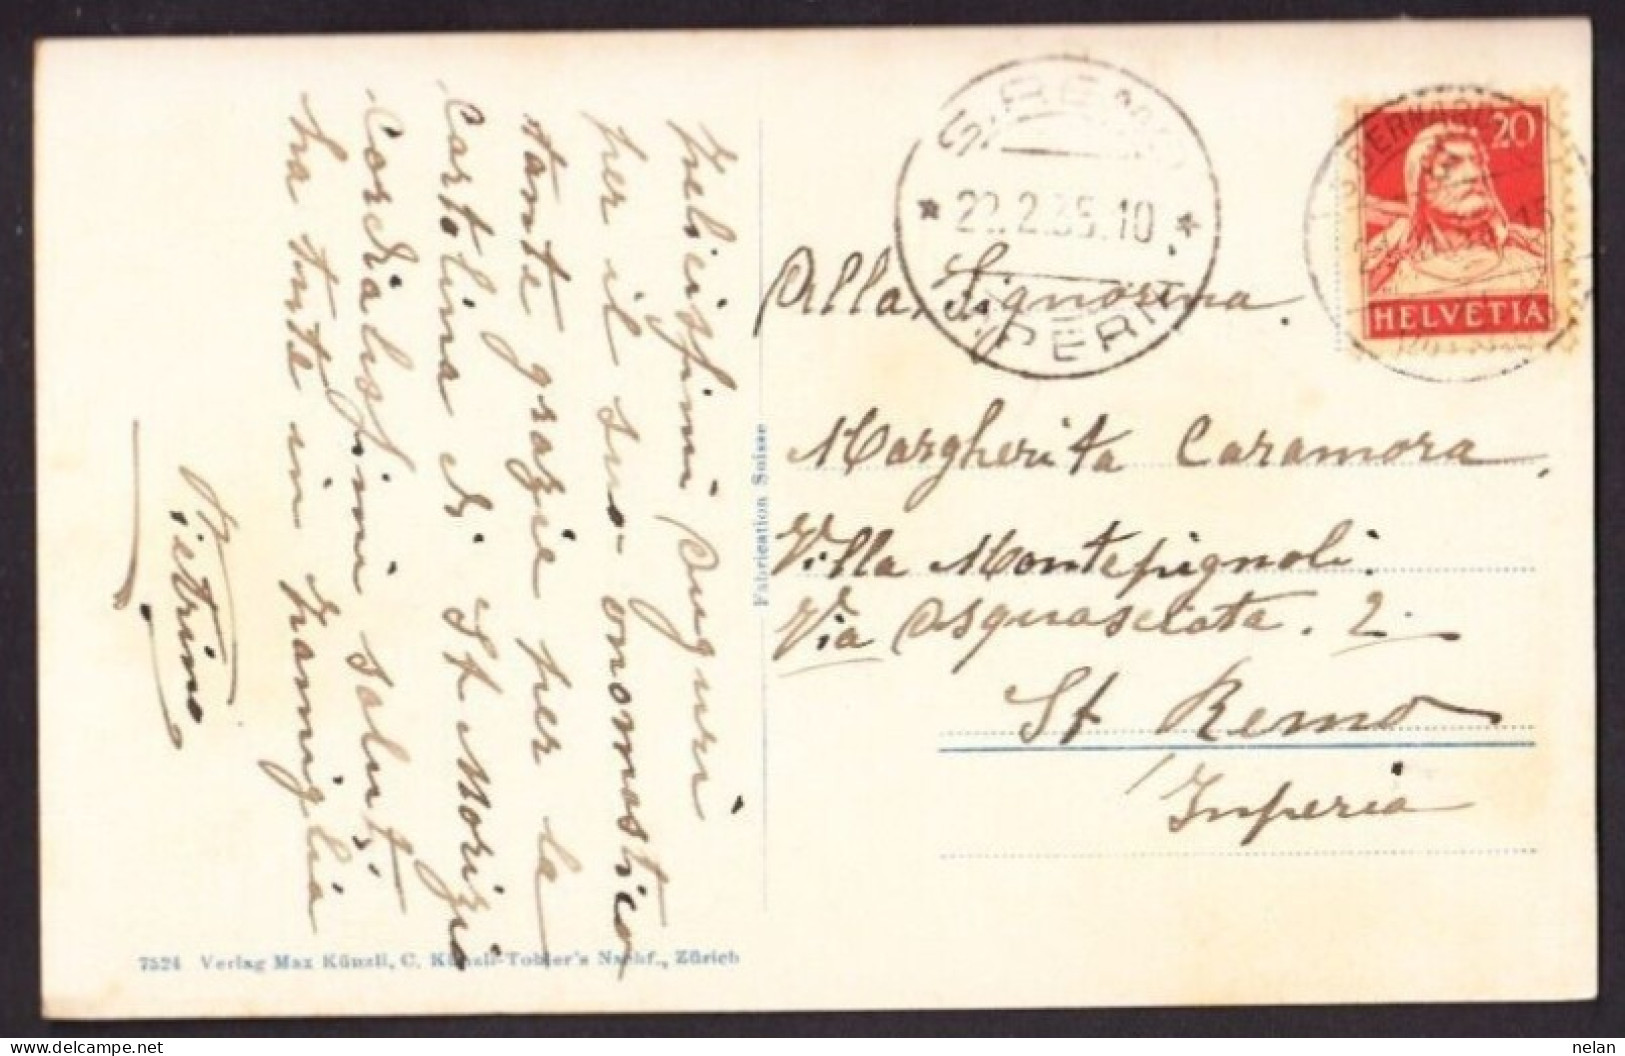 Felicissimi Auguri
per il suo onomastico
tante grazie per la
Cartolina di St Morizio
Cordialissimi saluti
ha tutte in famiglia
Pietrino
Fabrication Suisse
7524 Verlag Max Künzli, C. Künzli-Tobler's Nachf., Zürich
S. REMO
22.2.35.10
IMPERIA
20
HELVETIA
Alla Signorina.
Margherita Caramora.
Villa Montepignoli.
Via Asquasciata. 2.
St Remo
Imperia
nelan
delcampe.net